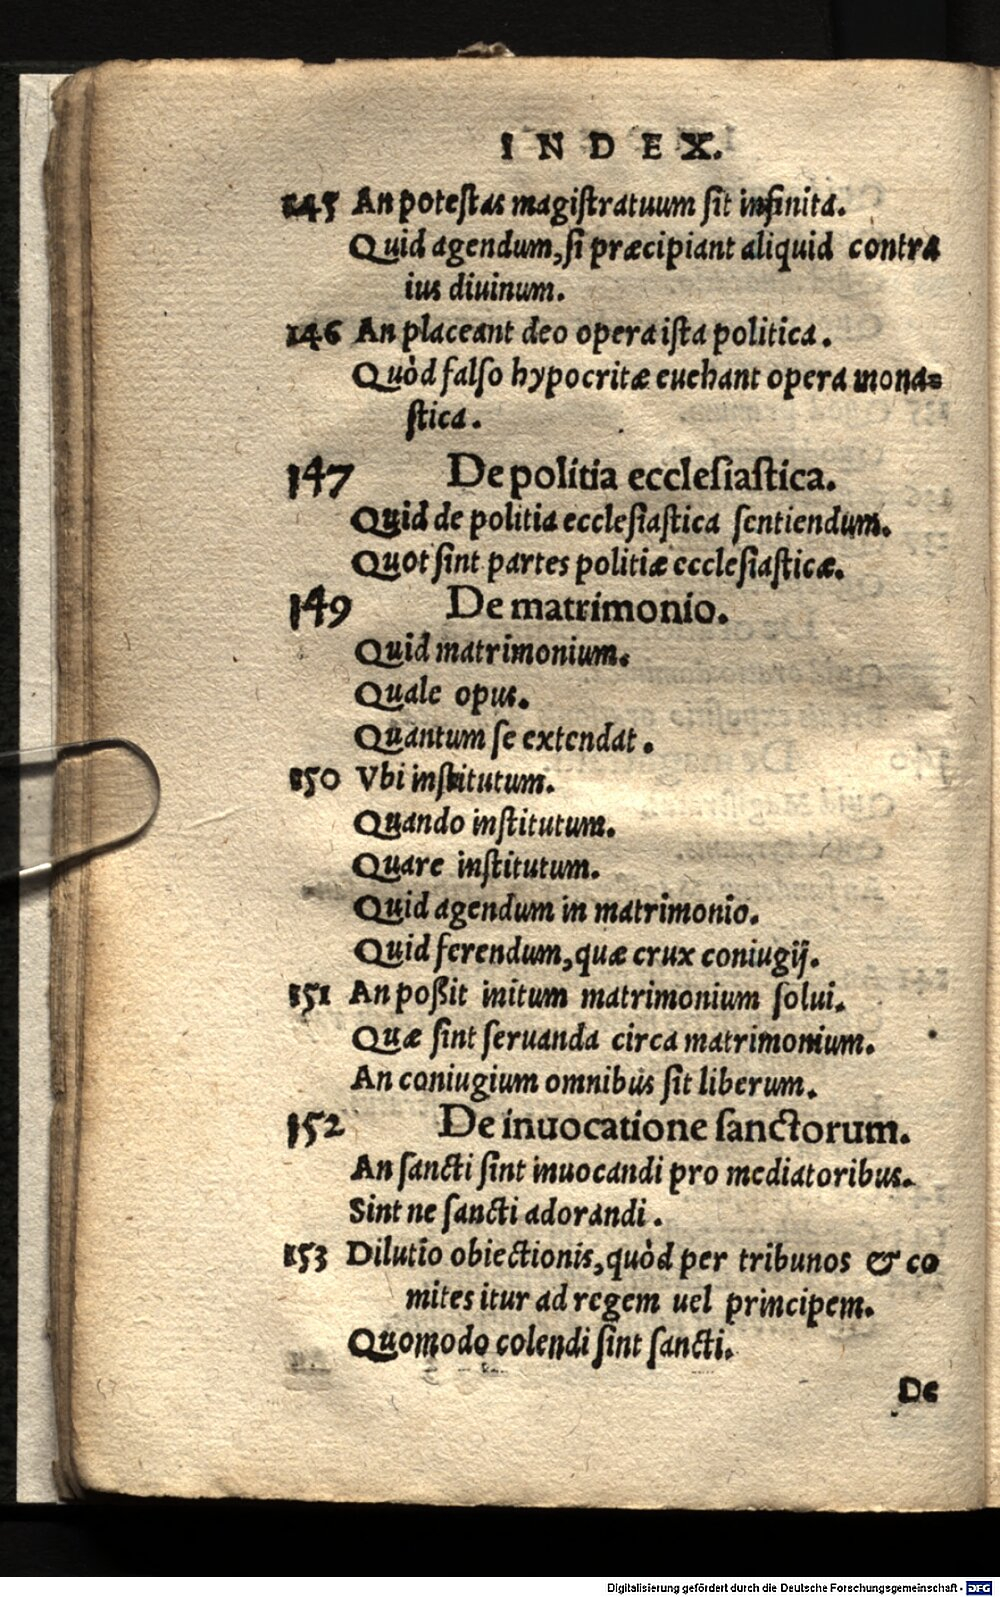 INDEX.
145 An potestas magistratuum sit infinita.
Quid agendum, si præcipiant aliquid contra
ius diuinum.
146 An placeant deo opera ista politica.
Quòd falso hypocritæ euehant opera mona=
stica.
147 De politia ecclesiastica.
Quid de politia ecclesiastica sentiendum.
Quot sint partes politiæ ecclesiasticæ.
149 De matrimonio.
Quid matrimonium.
Quale opus.
Quantum se extendat.
150 Vbi institutum.
Quando institutum.
Quare institutum.
Quid agendum in matrimonio.
Quid ferendum, quæ crux coniugij.
151 An poßit initum matrimonium solui.
Quæ sint seruanda circa matrimonium.
An coniugium omnibus sit liberum.
152 De inuocatione sanctorum.
An sancti sint inuocandi pro mediatoribus.
Sint ne sancti adorandi.
153 Dilutio obiectionis, quòd per tribunos & co
mites itur ad regem uel principem.
Quomodo colendi sint sancti.
De
Digitalisierung gefördert durch die Deutsche Forschungsgemeinschaft - DFG